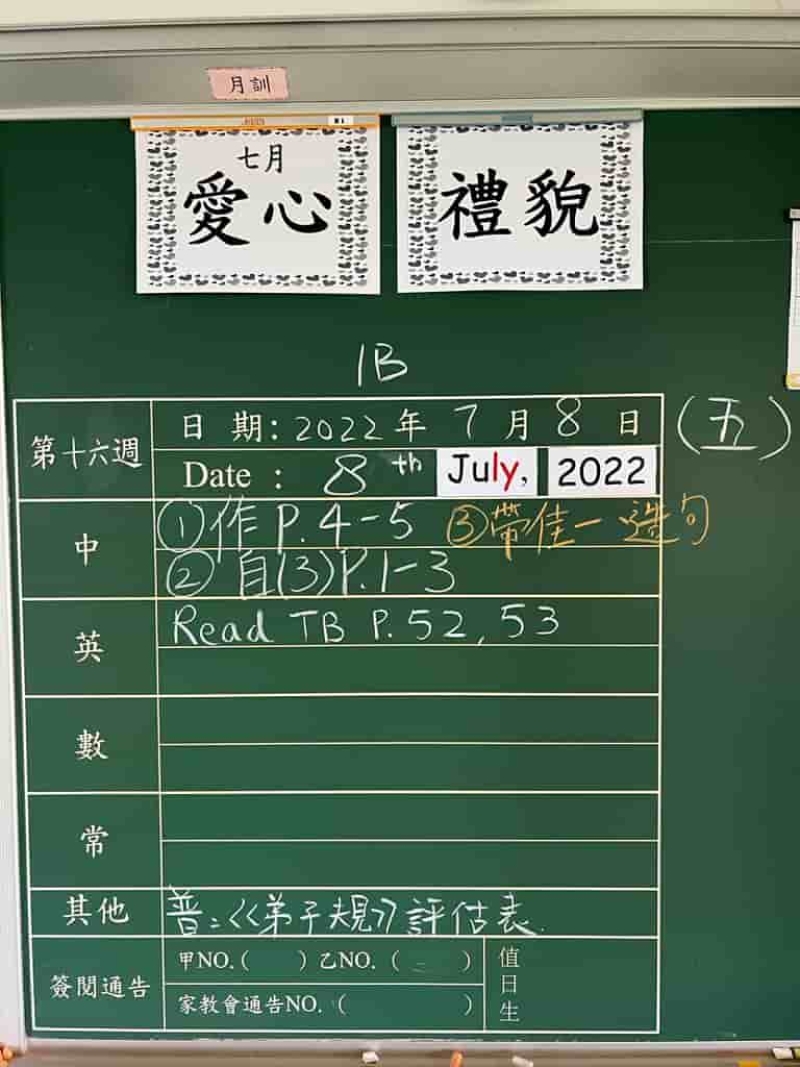 月訓
七月
愛心
禮貌
1B
第十六週
日 期：2022年 7月 8日 (五)
Date : 8th July, 2022
中
①作 P.4-5 ③帶佳一 造句
②自(3)P.1-3
英
Read TB P.52, 53
數
常
其他
普：《弟子規》評估表
簽閱通告
甲NO.( ) 乙NO. ( )
家教會通告NO. ( )
值日生